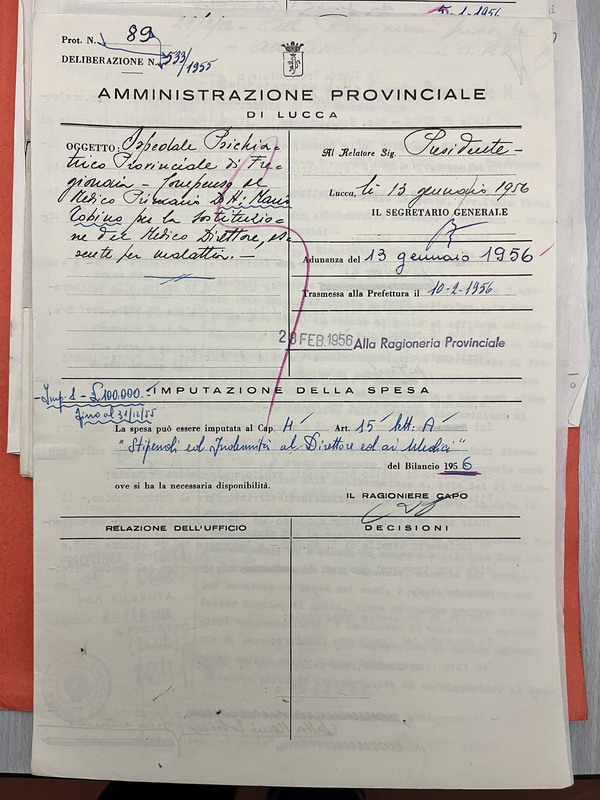 5-1-1956
Prot. N. 89
DELIBERAZIONE N. 533/1955
AMMINISTRAZIONE PROVINCIALE
DI LUCCA
OGGETTO: Ospedale Psichia=
trico Provinciale di Fre=
gionaia - Compenso al
Medico Primario Dr. Mario
Tobino per la sostituzio=
ne del Medico Direttore, as=
sente per malattia. -
Al Relatore Sig. Presidente -
Lucca, lì 13 gennaio 1956
IL SEGRETARIO GENERALE
Adunanza del 13 gennaio 1956
Trasmessa alla Prefettura il 10-2-1956
28 FEB. 1956 Alla Ragioneria Provinciale
- Imp. 1 - £ 100.000. -
fino al 31/12/55
IMPUTAZIONE DELLA SPESA
La spesa può essere imputata al Cap. 4 Art. 15 lett: A
"Stipendi ed Indennità al Direttore ed ai Medici"
del Bilancio 1956
ove si ha la necessaria disponibilità.
IL RAGIONIERE CAPO
RELAZIONE DELL'UFFICIO
DECISIONI